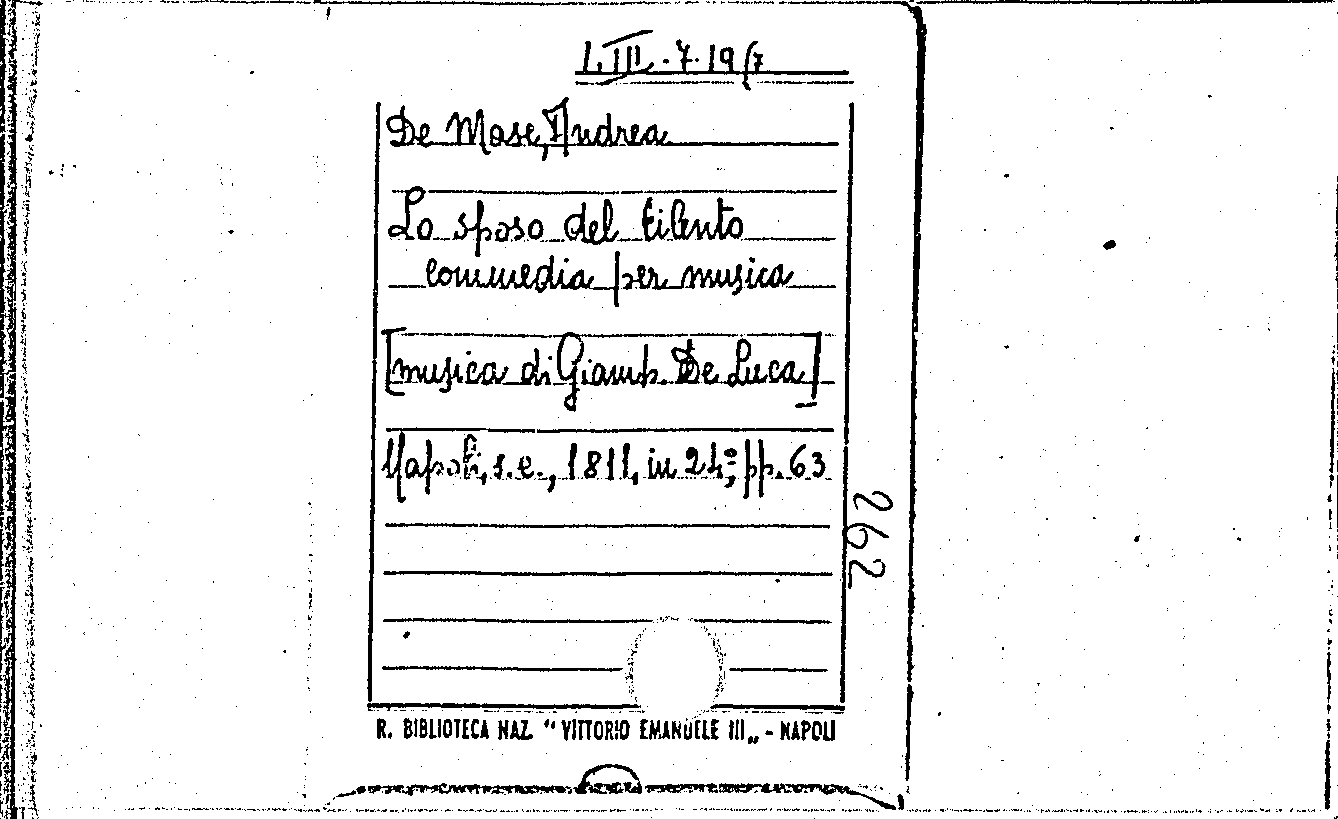 L.III.7.19(7
De Mase, Andrea
Lo sposo del Cilento
commedia per musica
[musica di Giamb. De Luca]
Napoli, s.e., 1811, in 24°; pp. 63
262
R. BIBLIOTECA NAZ. "VITTORIO EMANUELE III„ - NAPOLI